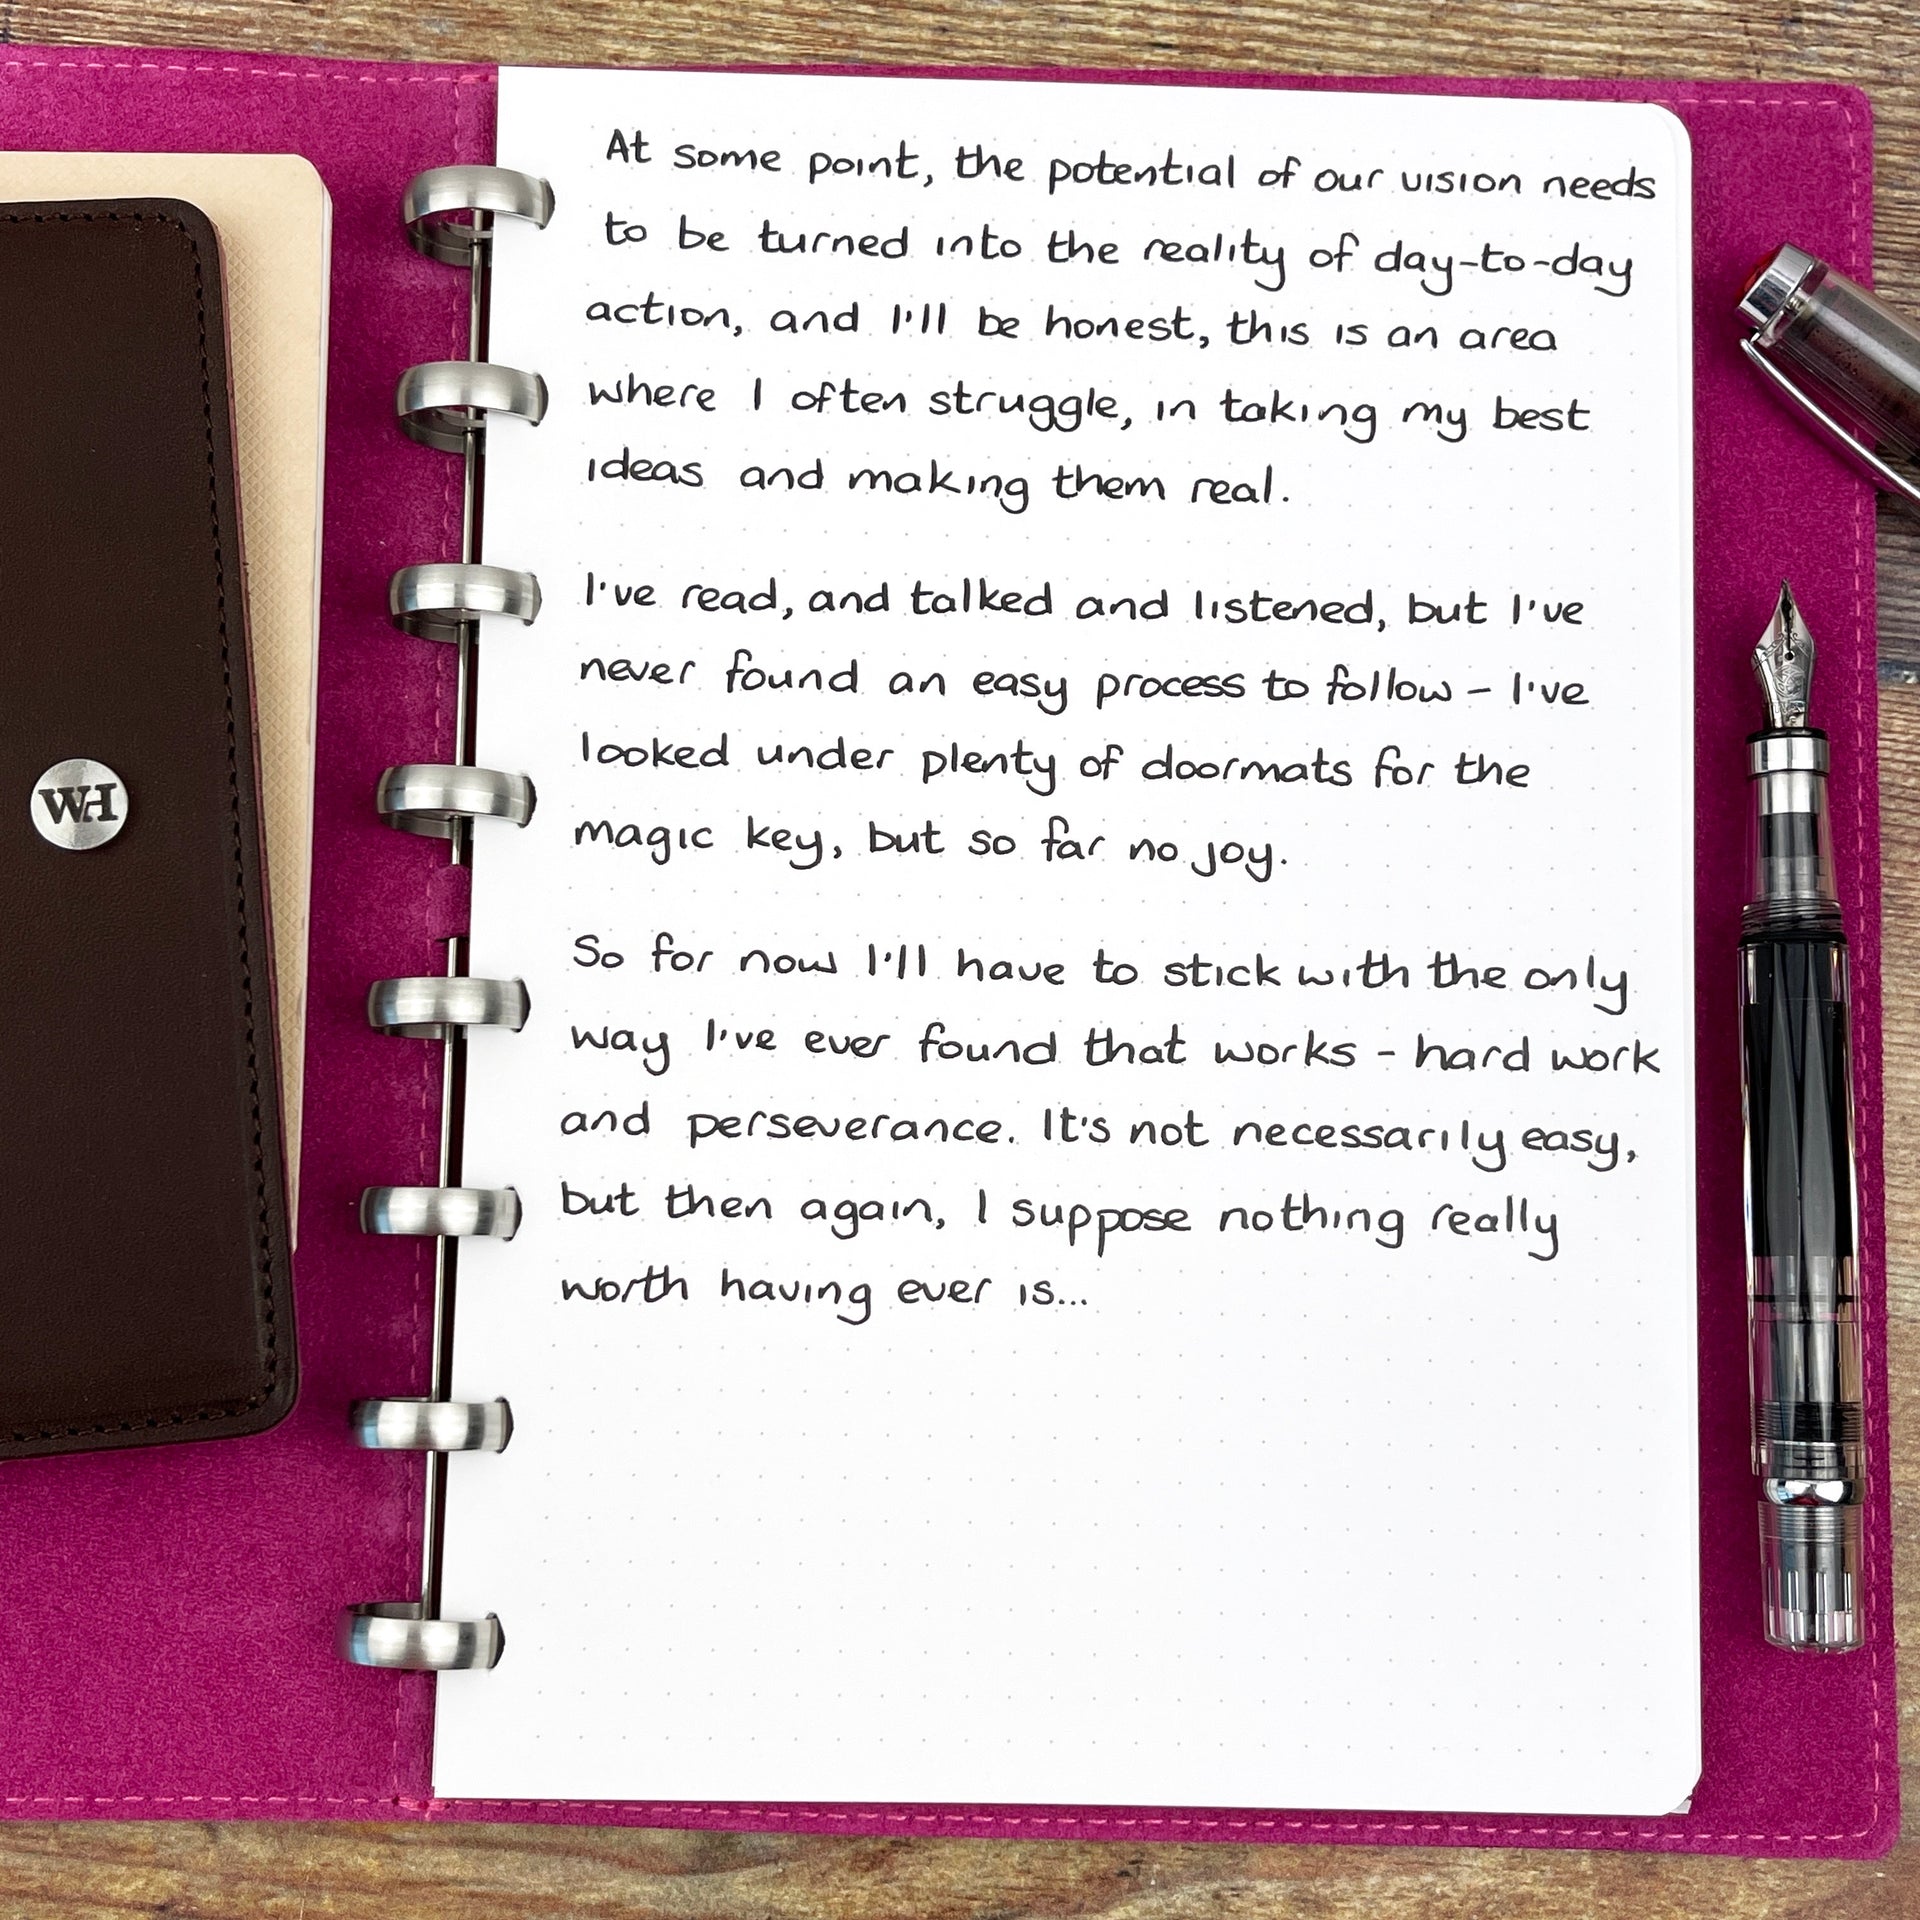 At some point, the potential of our vision needs
to be turned into the reality of day-to-day
action, and I'll be honest, this is an area
where I often struggle, in taking my best
ideas and making them real.
I've read, and talked and listened, but I've
never found an easy process to follow – I've
looked under plenty of doormats for the
magic key, but so far no joy.
So for now I'll have to stick with the only
way I've ever found that works – hard work
and perseverance. It's not necessarily easy,
but then again, I suppose nothing really
worth having ever is...
WH